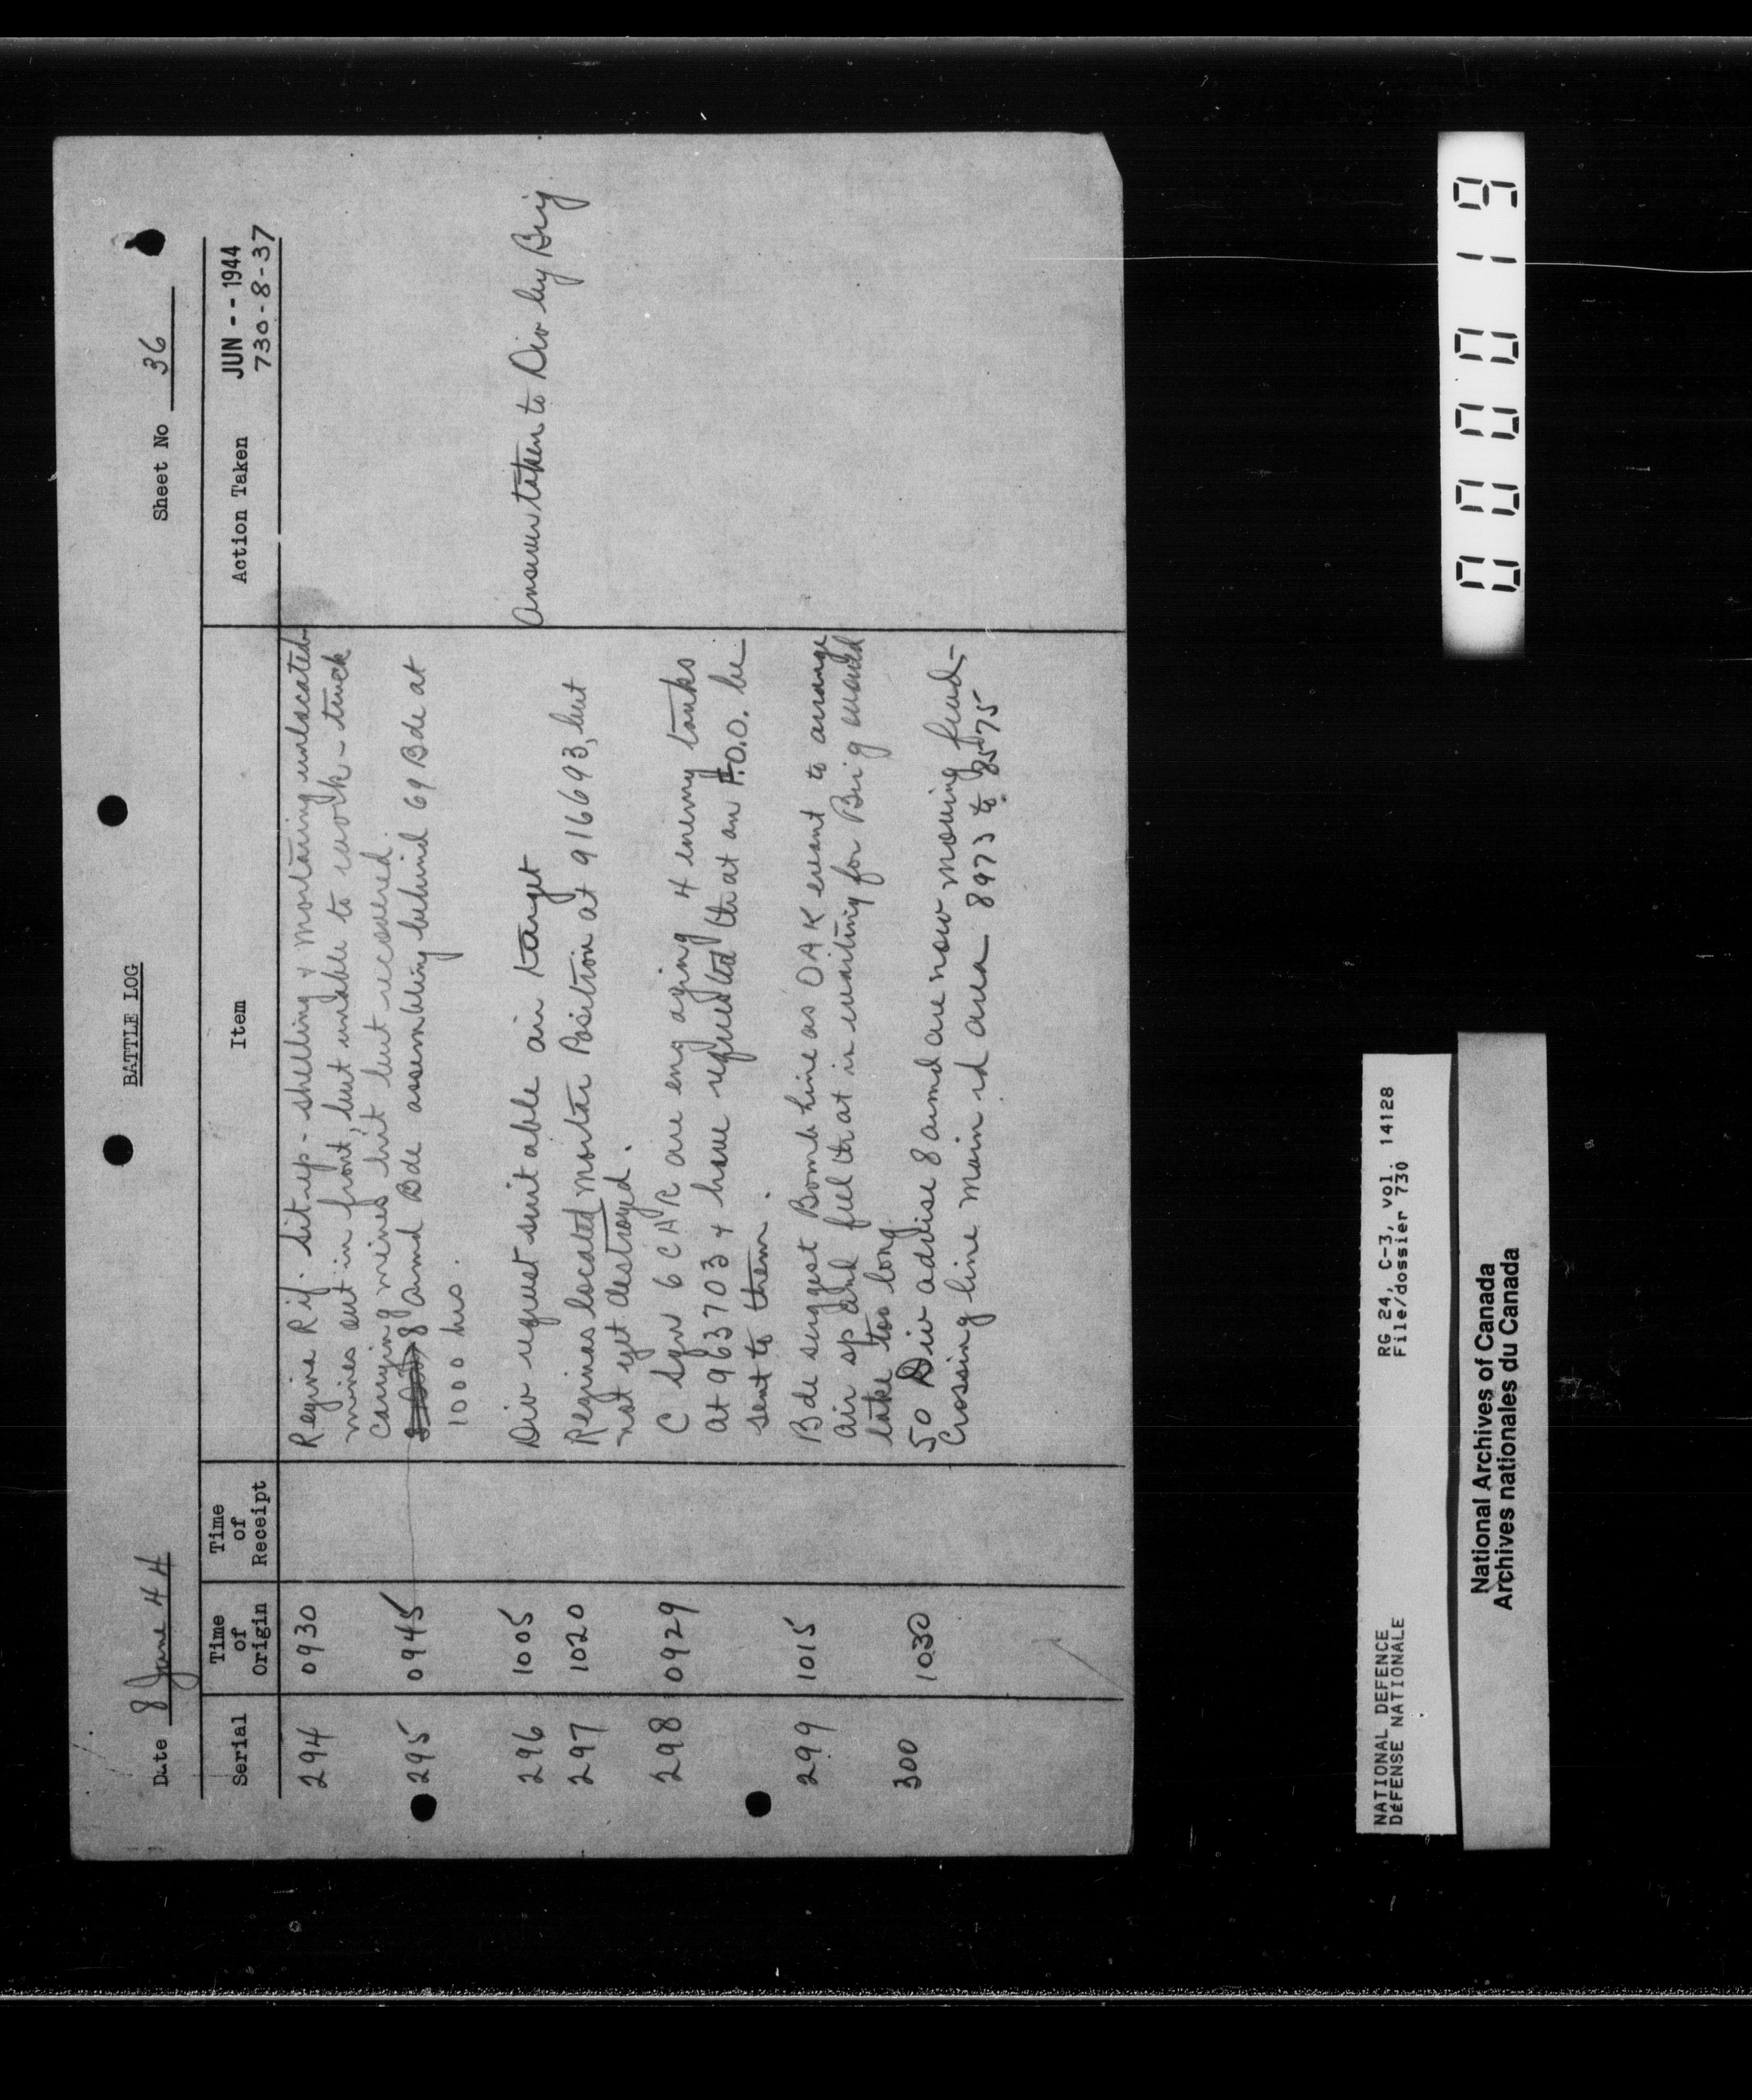 BATTLE LOG
Date 8 June 44
Sheet No 36
Serial
Time of Origin
Time of Receipt
Item
Action Taken
JUN -- 1944
730-8-37
294 0930 Regina Rif. Sit rep - shelling & mortaring unlocated
mines out in front, but unable to work - truck
carrying mines hit but recovered
295 0945 8 armd Bde assembling behind 69 Bde at
1000 hrs.
296 1005 Div request suitable air target Answer taken to Div by Brig
297 1020 Reginas located mortar Position at 916693, but
not yet destroyed.
298 0929 C Sqn 6 CAR are engaging 4 enemy tanks
at 963703 & have requested that an F.O.O. be
sent to them.
299 1015 Bde suggest Bomb line as OAK to arrange
air sp and feel that in waiting for Brig would
take too long
300 1030 50 Div advise 8 armd are now moving fwd -
Crossing line main rd area 8973 to 8575
NATIONAL DEFENCE
DÉFENSE NATIONALE
RG 24, C-3, vol. 14128
File/dossier 730
National Archives of Canada
Archives nationales du Canada
000019